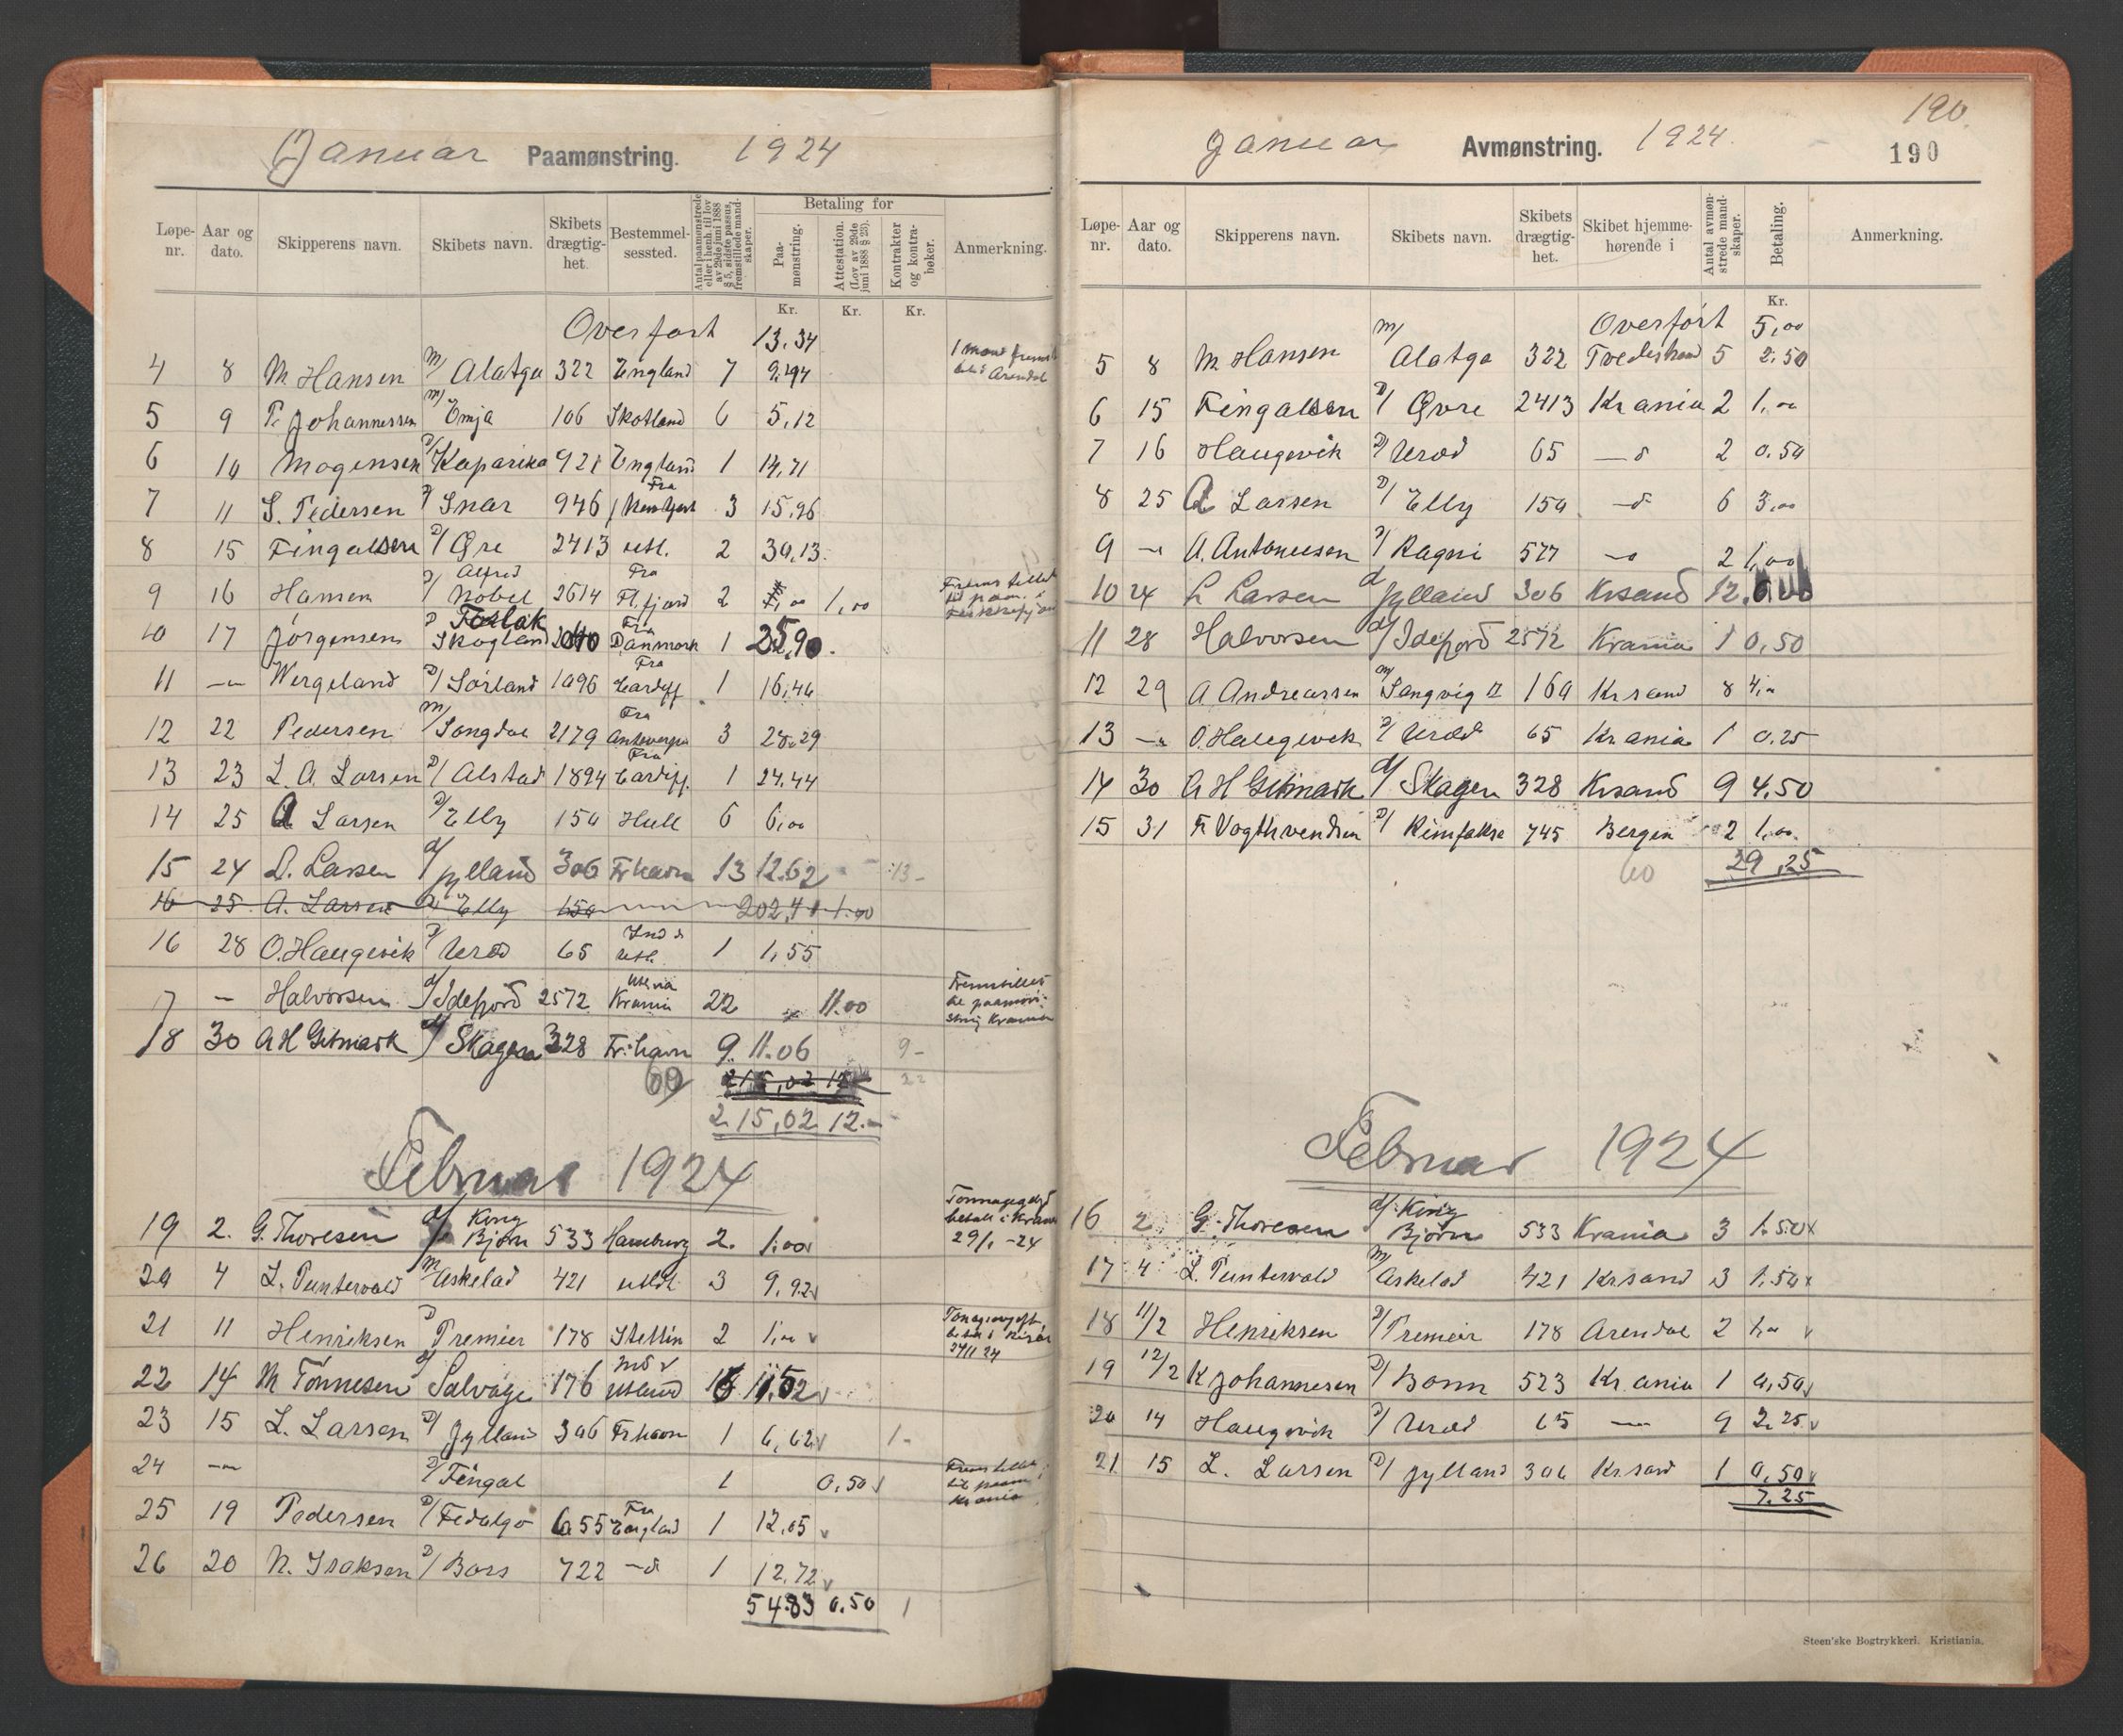 Januar Paamønstring. 1924
Betaling for
Løpe-nr. Aar og dato. Skipperens navn. Skibets navn. Skibets drægtig-het. Bestemmel-sessted. Antal paamønstrede eller i henh. til lov av 29de juni 1888 § 5, sidste passus, fremstillede mand-skaper. Paa-mønstring. Attestation. (Lov av 29de juni 1888 § 23). Kontrakter og kontra-bøker. Anmerkning.
Kr. Kr. Kr.
Overført 13.34
4 8 M Hansen M/ Alatga 322 England 7 9.94 1 mand
Arendal
5 9 P. Johannessen M/ Emja 106 Skotland 6 5,12
6 10 Mogensen D/ Kaparika 921 England 1 14,71
7 11 S. Pedersen D/ Snar 946 Fra 3 15,96
8 15 Fingalsen D/ Øre 2413 utl. 2 30,13
9 16 Hansen D/ Alfred Nobel 2614 Fra Fl.fjord 2 1,00
10 17 Jørgensen D Foslak Skogland Fra Danmark 1 25,90
11 — Wergeland D/ Sørland 1096 Fra Cardiff 1 16,46
12 22 Pedersen M/ Songdal 2179 Fra Antwerpen 3 28,29
13 23 L. A. Larsen D/ Alstad 1894 Fra Cardiff. 1 24.44
14 25 A Larsen D/ Elly 150 Hull 6 6,00
15 24 L. Larsen d/ Jylland 306 Frhavn 13 12.62 13-
16 25 A. Larsen d/ Elly 150 202,41 1.00
16 28 O. Haugevik D/ Uræd 65 Ind & Utl. 1 1,55
17 — Halvorsen d/ Idefjord 2572 Utl via Krania 22 11.00 Fremstillet
til paamøn-
string Krania
18 30 A H Gitmark d/ Skagen 328 Fr:havn 9. 11.06 9-
60 215,02 12 22
215,02 12.-
Februar 1924
19 2. G. Thoresen d/ Kong Bjørn 533 Hamburg 2. 1.00 Tonnageavgift
betalt i Krania
29/1 -24
20 4 L. Puntervold M/ Askelad 421 utl. 3 9,92
21 11 Henriksen D Premier 178 Stettin 2 1,00
22 14 M Tønnesen d/ Salvage 176 Ind & Utland 16 11.52
23 15 L. Larsen D/ Jylland 306 Frhavn 1 6,62 1-
24 — D/ Fingal 1 0,50 Fremstillet
til paam i
Krania
25 19 Pedersen D/ Fidalgo 655 Fra England 1 12,05
26 20 N. Isaksen D/ Bars 722 —d 1 12,72
54.83 0.50 1
190.
Januar Avmønstring. 1924. 190
Løpe-nr. Aar og dato. Skipperens navn. Skibets navn. Skibets drægtig-het. Skibet hjemme-hørende i Antal avmøn-strede mand-skaper. Betaling. Anmerkning.
Kr.
Overført 5,00
5 8 M Hansen M/ Alatga 322 Tvedestrand 5 2.50
6 15 Fingalsen D/ Øvre 2413 Krania 2 1,00
7 16 Haugevik D/ Uræd 65 —d 2 0.50
8 25 A Larsen D/ Elly 150 —d 6 3,00
9 — A. Antonesen D/ Ragni 577 —d 2 1,00
10 24 L Larsen d/ Jylland 306 Krsand 12
11 28 Halvorsen d/ Idefjord 2572 Krania 1 0,50
12 29 A Andreassen M/ Langvig II 160 Krsand 8 4,00
13 — O. Haugevik D/ Uræd 65 Krania 1 0.25
14 30 A H Gitmark d/ Skagen 328 Krsand 9 4.50
15 31 D/ Rimfakse 745 Bergen 2 1,00
60 29,25
Februar 1924
16 2 G. Thoresen d/ Kong Bjørn 533 Krania 3 1.50
17 4 L. Puntervold M/ Askelad 421 Krsand 3 1.50
18 11/2 Henriksen D/ Premier 178 Arendal 2 1,00
19 12/2 K Johannesen D/ Bonn 523 Krania 1 0,50
20 14 Haugevik D/ Uræd 65 — 9 2.25
21 15 L. Larsen D/ Jylland 306 Krsand 1 0,50
7.25
Steen'ske Bogtrykkeri. Kristiania.